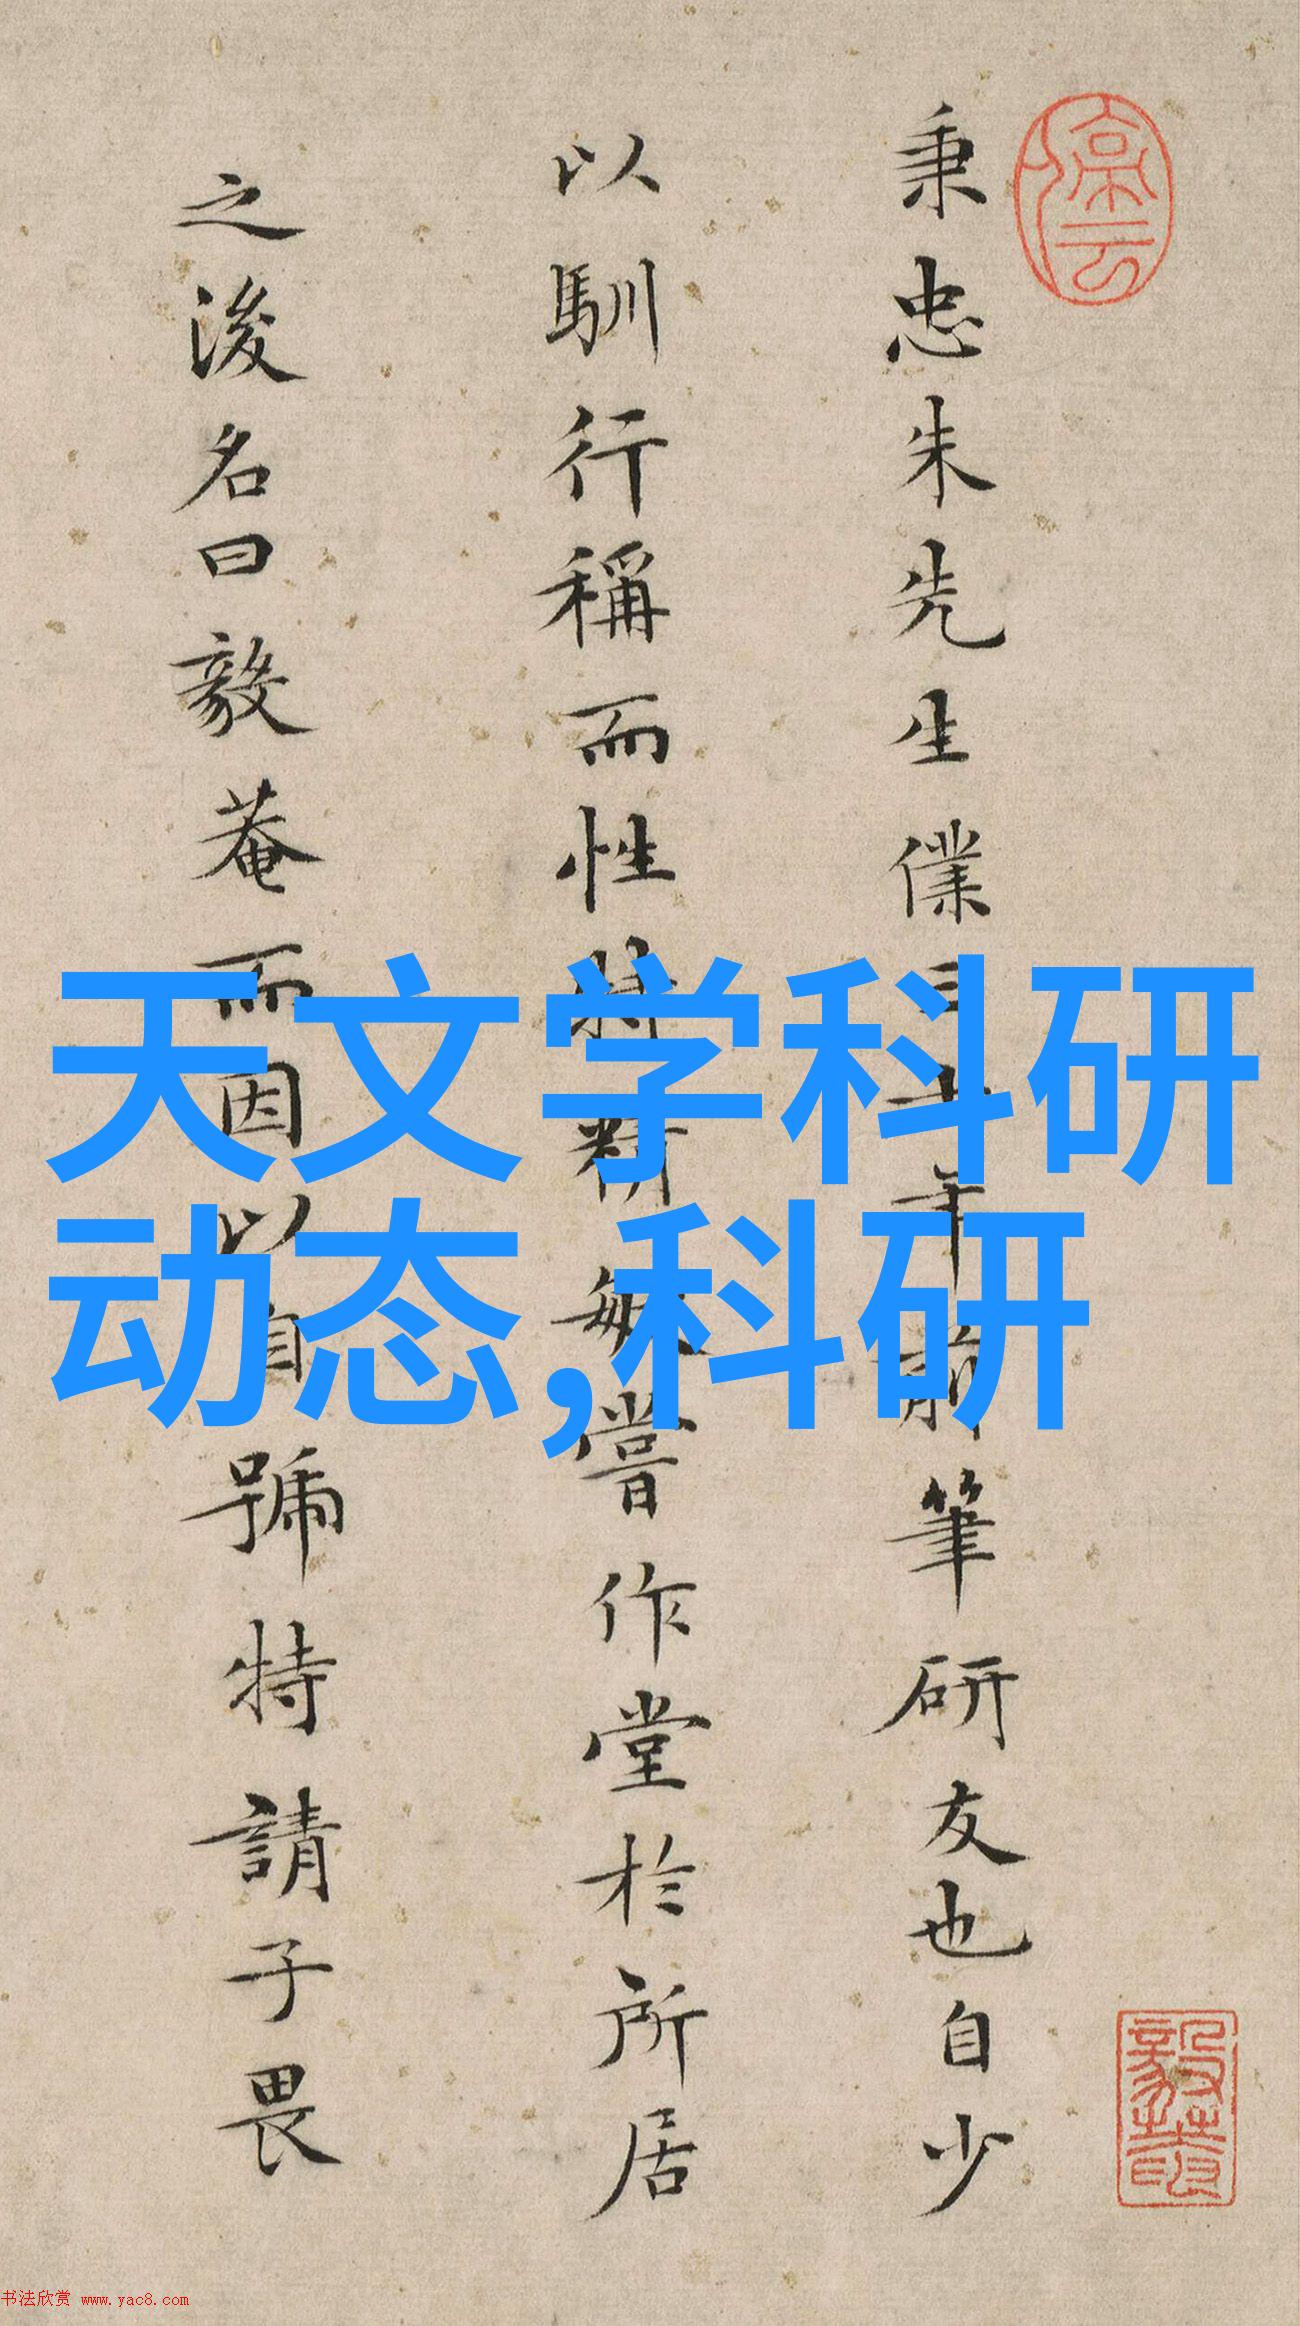 秉忠朱先生僕三十年前筆硏友也自少
以馴行稱而性特精敏嘗作堂於所居
之後名曰毅菴而因以自號特請子畏
天文学科研
动态,科研
書法欣赏 www.yac8.com